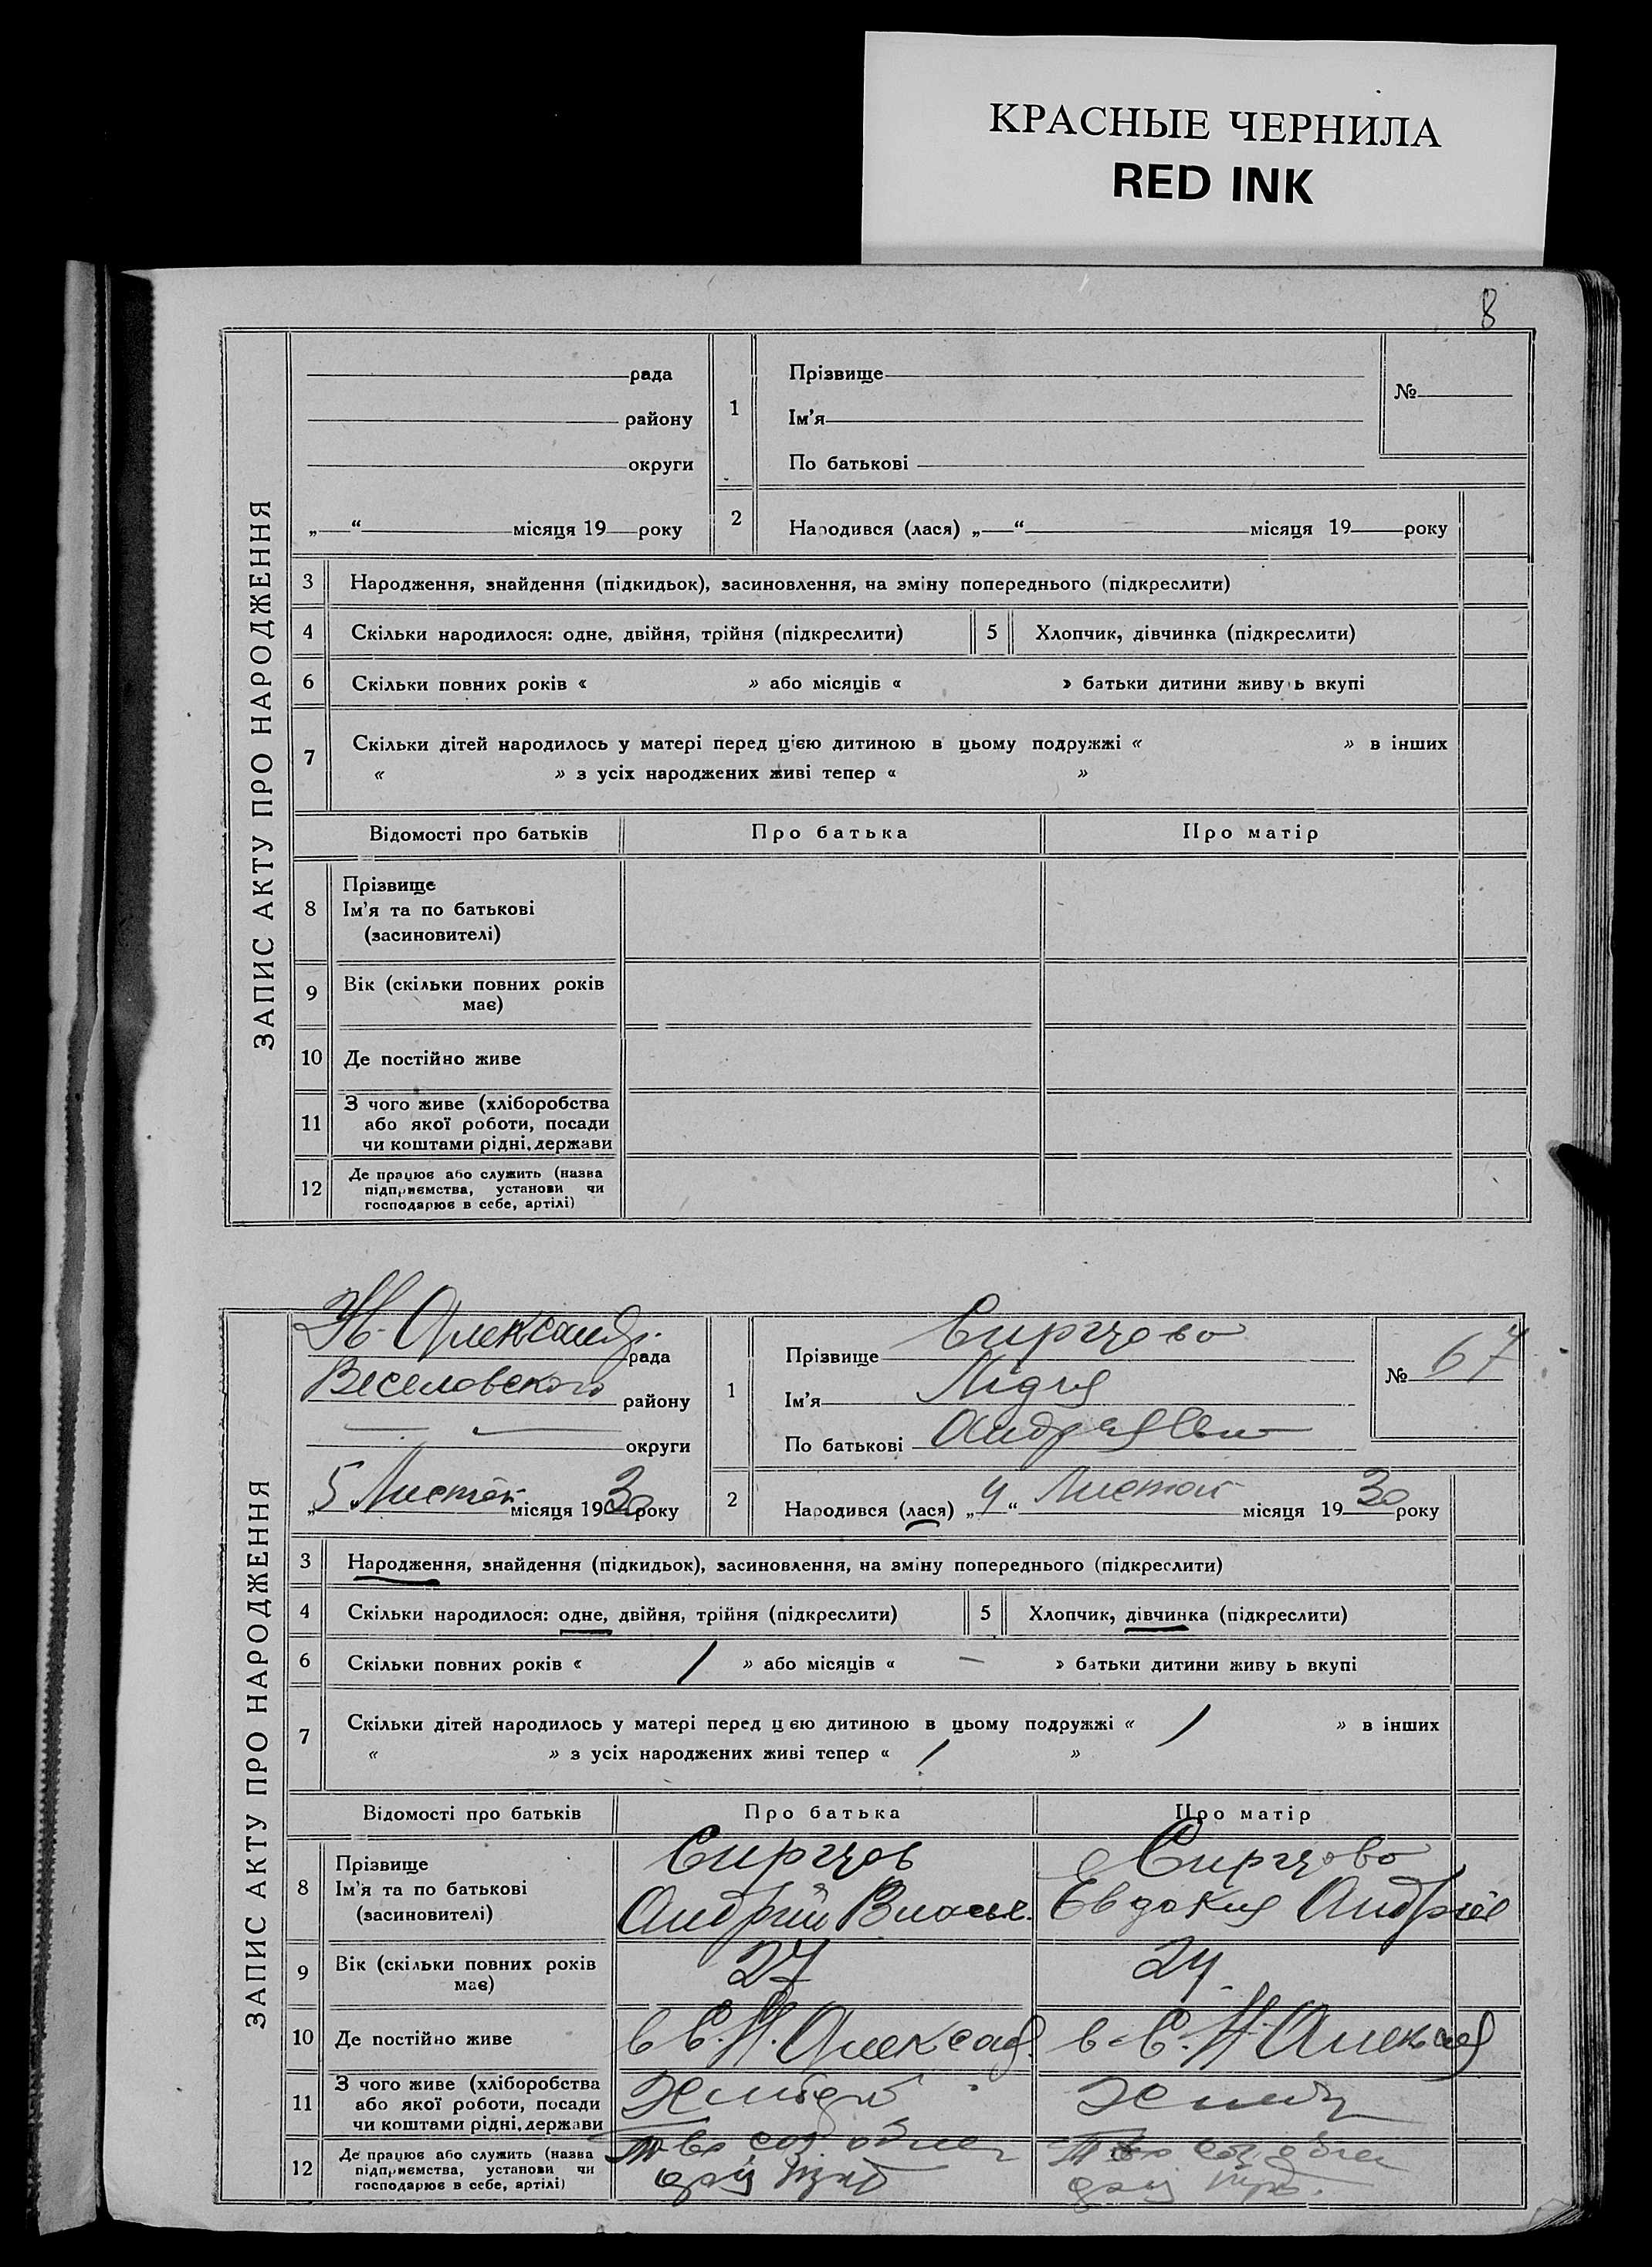 КРАСНЫЕ ЧЕРНИЛА
RED INK
8
ЗАПИС АКТУ ПРО НАРОДЖЕННЯ
рада
району
округи
„ “ місяця 19 року
1
Прізвище
Ім'я
По батькові
№
2
Народився (лася) „ “ місяця 19 року
3 Народження, знайдення (підкидьок), засиновлення, на зміну попереднього (підкреслити)
4 Скільки народилося: одне, двійня, трійня (підкреслити) 5 Хлопчик, дівчинка (підкреслити)
6 Скільки повних років « » або місяців « » батьки дитини живу ь вкупі
7 Скільки дітей народилось у матері перед цією дитиною в цьому подружжі « » в інших
« » з усіх народжених живі тепер « »
Відомості про батьків Про батька Про матір
8 Прізвище
Ім'я та по батькові
(засиновителі)
9 Вік (скільки повних років
має)
10 Де постійно живе
11 З чого живе (хліборобства
або якої роботи, посади
чи коштами рідні, держави
12 Де працює або служить (назва
підприємства, установи чи
господарює в себе, артілі)
ЗАПИС АКТУ ПРО НАРОДЖЕННЯ
Н-Александ. рада
Веселовского району
— — округи
„5 Листоп місяця 1930 року
1
Прізвище Сирцово
Ім'я Лідия
По батькові
№ 67
2
Народився (лася) „4“ Листоп місяця 1930 року
3 Народження, знайдення (підкидьок), засиновлення, на зміну попереднього (підкреслити)
4 Скільки народилося: одне, двійня, трійня (підкреслити) 5 Хлопчик, дівчинка (підкреслити)
6 Скільки повних років « / » або місяців « — » батьки дитини живу ь вкупі
7 Скільки дітей народилось у матері перед ц єю дитиною в цьому подружжі « / » в інших
« » з усіх народжених живі тепер « / »
Відомості про батьків Про батька Про матір
8 Прізвище Сирцов Сирцово
Ім'я та по батькові Андрій Власье. Евдокия Андріе
(засиновителі)
9 Вік (скільки повних років 27 24
має)
10 Де постійно живе в С. Н. Александ. в С. Н-Александ
11 З чого живе (хліборобства
або якої роботи, посади
чи коштами рідні, держави
12 Де працює або служить (назва
підприємства, установи чи
господарює в себе, артілі)